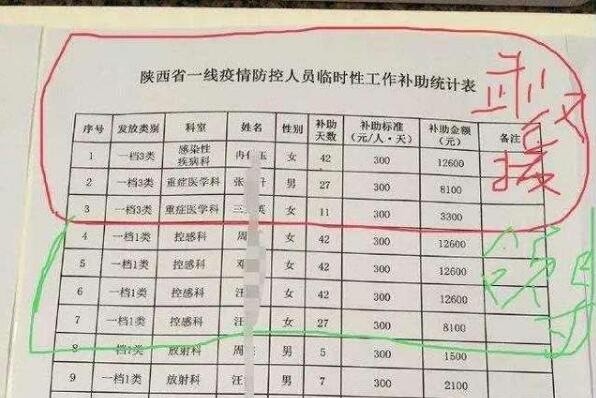 陕西省一线疫情防控人员临时性工作补助统计表
序号 发放类别 科室 姓名 性别 补助天数 补助标准(元/人·天) 补助金额(元) 备注
1 一档3类 感染性疾病科 冉 玉 女 42 300 12600
2 一档3类 重症医学科 张 男 27 300 8100
3 一档3类 重症医学科 王 英 女 11 300 3300
4 一档1类 控感科 周 女 42 300 12600
5 一档1类 控感科 邓 女 42 300 12600
6 一档1类 控感科 汪 女 42 300 12600
7 一档1类 控感科 汪 女 27 300 8100
8 一档1类 放射科 周 男 5 300 1500
9 一档1类 放射科 汪 男 7 300 2100
武汉
援